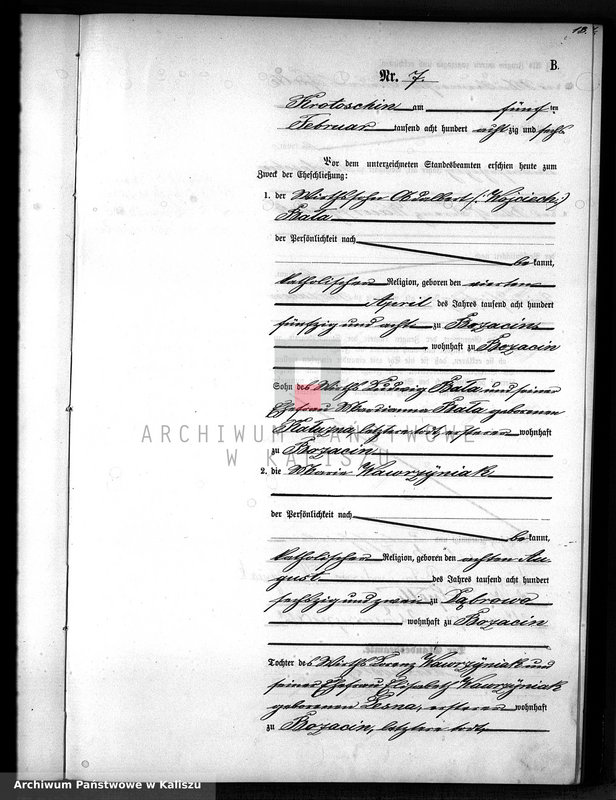 B.
Nr. 7.
Krotoschin am fünf ten
Februar tausend acht hundert acht zig und sechs
Vor dem unterzeichneten Standesbeamten erschien heute zum
Zweck der Eheschließung:
1. der Wirthssohn Adalbert (: Wojciech :)
Bała
der Persönlichkeit nach
be kannt,
katholischen Religion, geboren den vierten
April des Jahres tausend acht hundert
fünfzig und acht zu Bozacin
wohnhaft zu Bozacin
Sohn des Wirths Ludwig Bała und seiner
Ehefrau Marianna Bała geborenen
letztere todt, ersterer wohnhaft
zu Bozacin
2. die Marie Wawrzyniak
der Persönlichkeit nach
be kannt,
katholischen Religion, geboren den achten Au-
gust des Jahres tausend acht hundert
sechzig und zwei zu Dąbrowo
wohnhaft zu Bozacin
Tochter des Wirths Lorenz Wawrzyniak und
seiner Ehefrau Elisabeth Wawrzyniak
geborenen Lesna, ersterer wohnhaft
zu Bozacin, letztere todt,
ARCHIWUM PAŃSTWOWE
W KALISZU
Archiwum Państwowe w Kaliszu